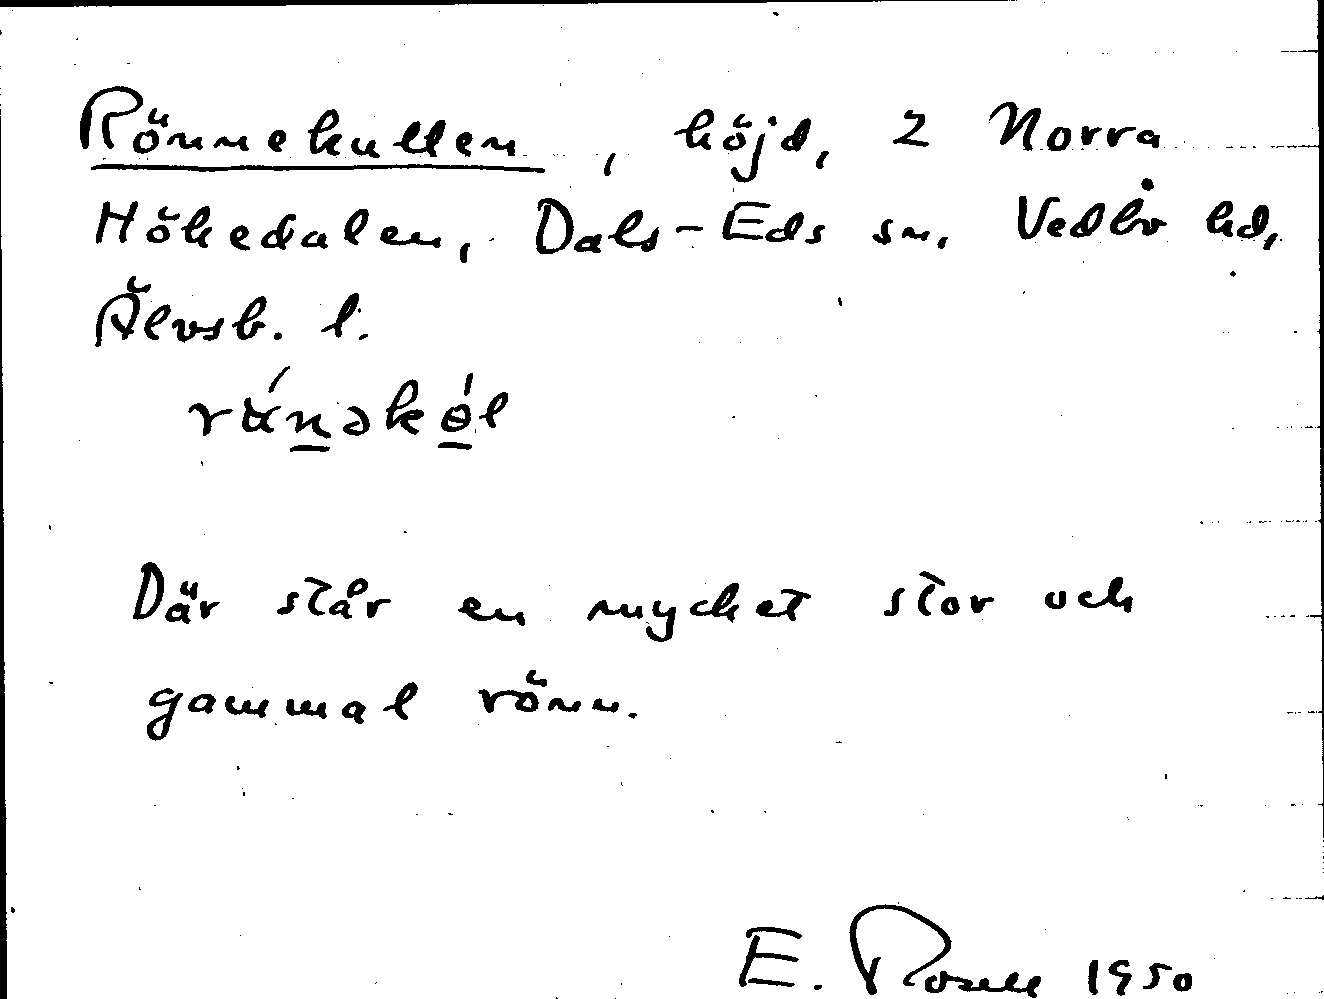 Rönnekullen, höjd, 2 Norra
Hökedalen, Dals-Eds sn, Vedbo hd,
Älvsb. l.
Där står en mycket stor och
gammal rönn.
E. Rosell 1950